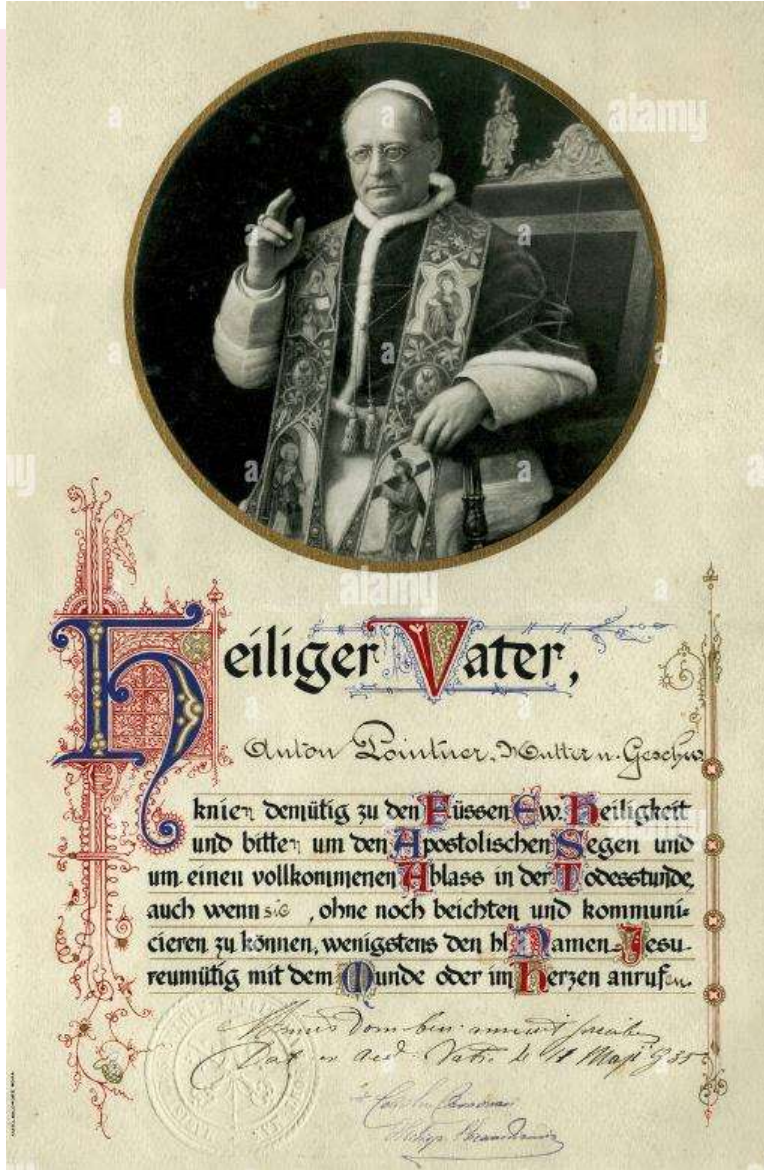 Heiliger Vater,
Anton Pointner, Mutter u. Geschw
knien demütig zu den Füssen Ew. Heiligkeit
und bitten um den Apostolischen Segen und
um einen vollkommenen Ablass in der Todesstunde,
auch wenn sie, ohne noch beichten und kommuni-
cieren zu können, wenigstens den hl Namen Jesu
reumütig mit dem Munde oder im Herzen anrufen.
Dat ex Aed. Vatic.
alamy